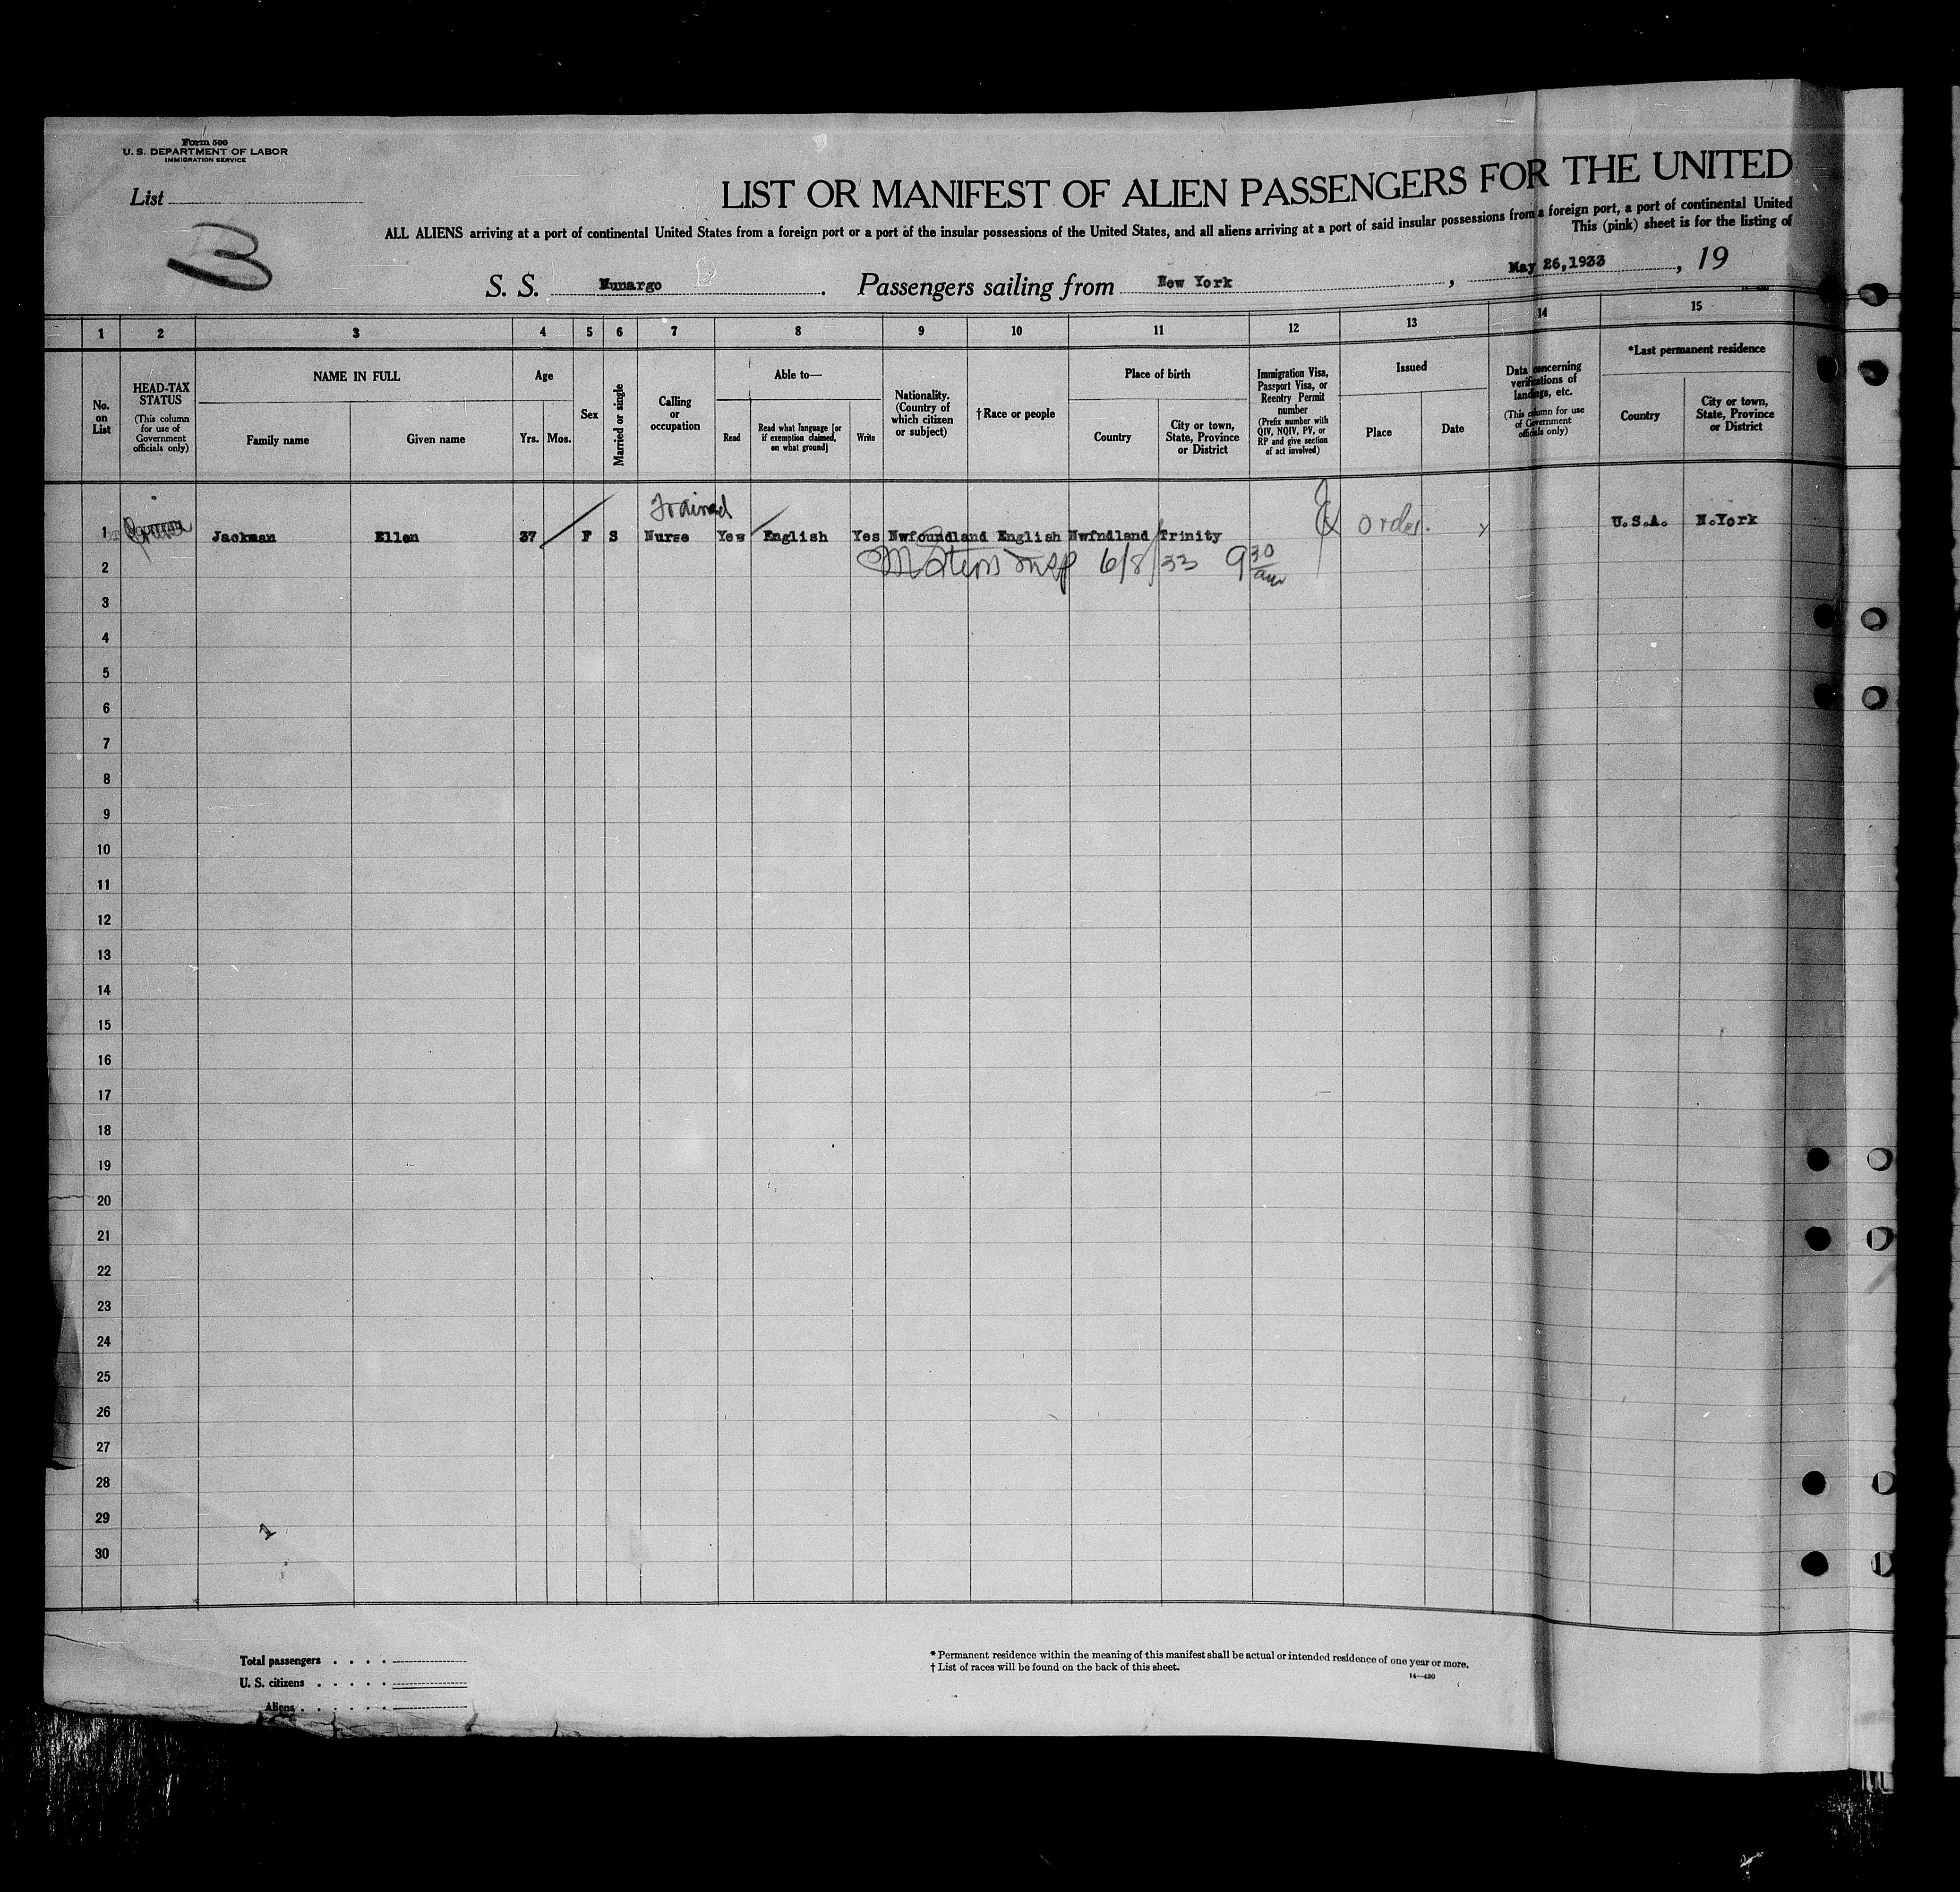 Form 500
U. S. DEPARTMENT OF LABOR
IMMIGRATION SERVICE
List
3
LIST OR MANIFEST OF ALIEN PASSENGERS FOR THE UNITED
ALL ALIENS arriving at a port of continental United States from a foreign port or a port of the insular possessions of the United States, and all aliens arriving at a port of said insular possessions from a foreign port, a port of continental United
This (pink) sheet is for the listing of
S. S. Munargo. Passengers sailing from New York, May 26,1933, 19
1 2 3 4 5 6 7 8 9 10 11 12 13 14 15
No. on List
HEAD-TAX STATUS
(This column for use of Government officials only)
NAME IN FULL
Family name
Given name
Age
Yrs. Mos.
Sex
Married or single
Calling or occupation
Able to—
Read
Read what language [or if exemption claimed, on what ground]
Write
Nationality. (Country of which citizen or subject)
†Race or people
Place of birth
Country
City or town, State, Province or District
Immigration Visa, Passport Visa, or Reentry Permit number
(Prefix number with QIV, NQIV, PV, or RP and give section of act involved)
Issued
Place
Date
Data concerning verifications of landings, etc.
(This column for use of Government officials only)
*Last permanent residence
Country
City or town, State, Province or District
Trained
1 Jackman Ellen 37 F S Nurse Yes English Yes Nwfoundland English Nwfndland Trinity order. U.S.A. N.York
2 6/8/33 9 30 am
3
4
5
6
7
8
9
10
11
12
13
14
15
16
17
18
19
20
21
22
23
24
25
26
27
28
29
1
30
Total passengers . . . .
U. S. citizens . . . . .
Aliens . . . . . .
* Permanent residence within the meaning of this manifest shall be actual or intended residence of one year or more.
† List of races will be found on the back of this sheet.
14—430